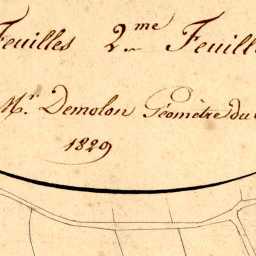 Feuilles 2.me Feuill
Mr. Demolon Géomètre du
1829